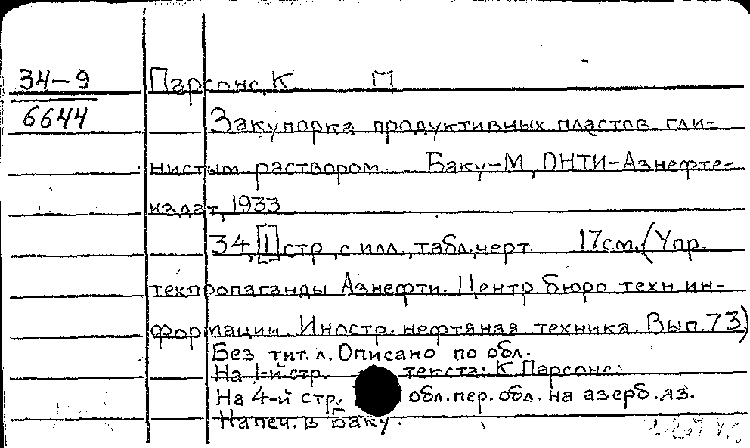 34-9
6644
Парсонс, К П
Закупорка продуктивных пластов гли-
нистым раствором. Баку-М, ОНТИ-Азнефте-
издат, 1933
34, [1] стр, с илл., табл., черт 17см. (Упр.
техпропаганды Азнефти. Центр бюро техн ин-
формации. Иностр. нефтяная техника. Вып. 73)
Без тит. л. Описано по обл.
На 1-й стр. текста: К. Парсонс.
На 4-й стр. обл. пер. обл. на азерб. яз.
Напеч. в Баку.